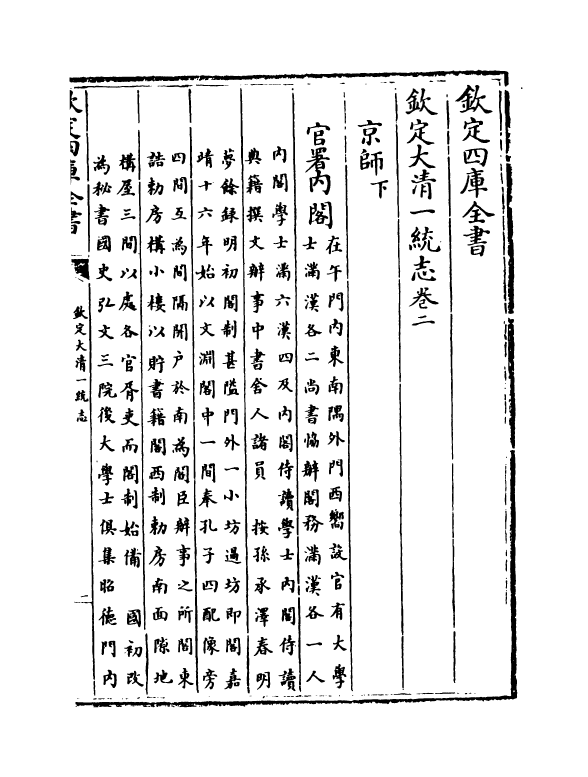 欽定四庫全書
欽定大清一統志卷二
京師下
官署内閣
在午門内東南隅外門西嚮設官有大學
士滿漢各二尚書協辦閣務滿漢各一人
内閣學士滿六漢四及内閣侍讀學士内閣侍讀
典籍撰文辦事中書舍人諸員 按孫承澤春明
夢餘録明初閣制甚隘門外一小坊過坊即閣嘉
靖十六年始以文淵閣中一間奉孔子四配像旁
四間互為間隔開户於南為閣臣辦事之所閣東
誥勅房構小樓以貯書籍閣西制勅房南面隙地
構屋三間以處各官胥吏而閣制始備 國初改
為秘書國史弘文三院後大學士俱集昭德門内
欽定四庫全書
欽定大清一統志
二